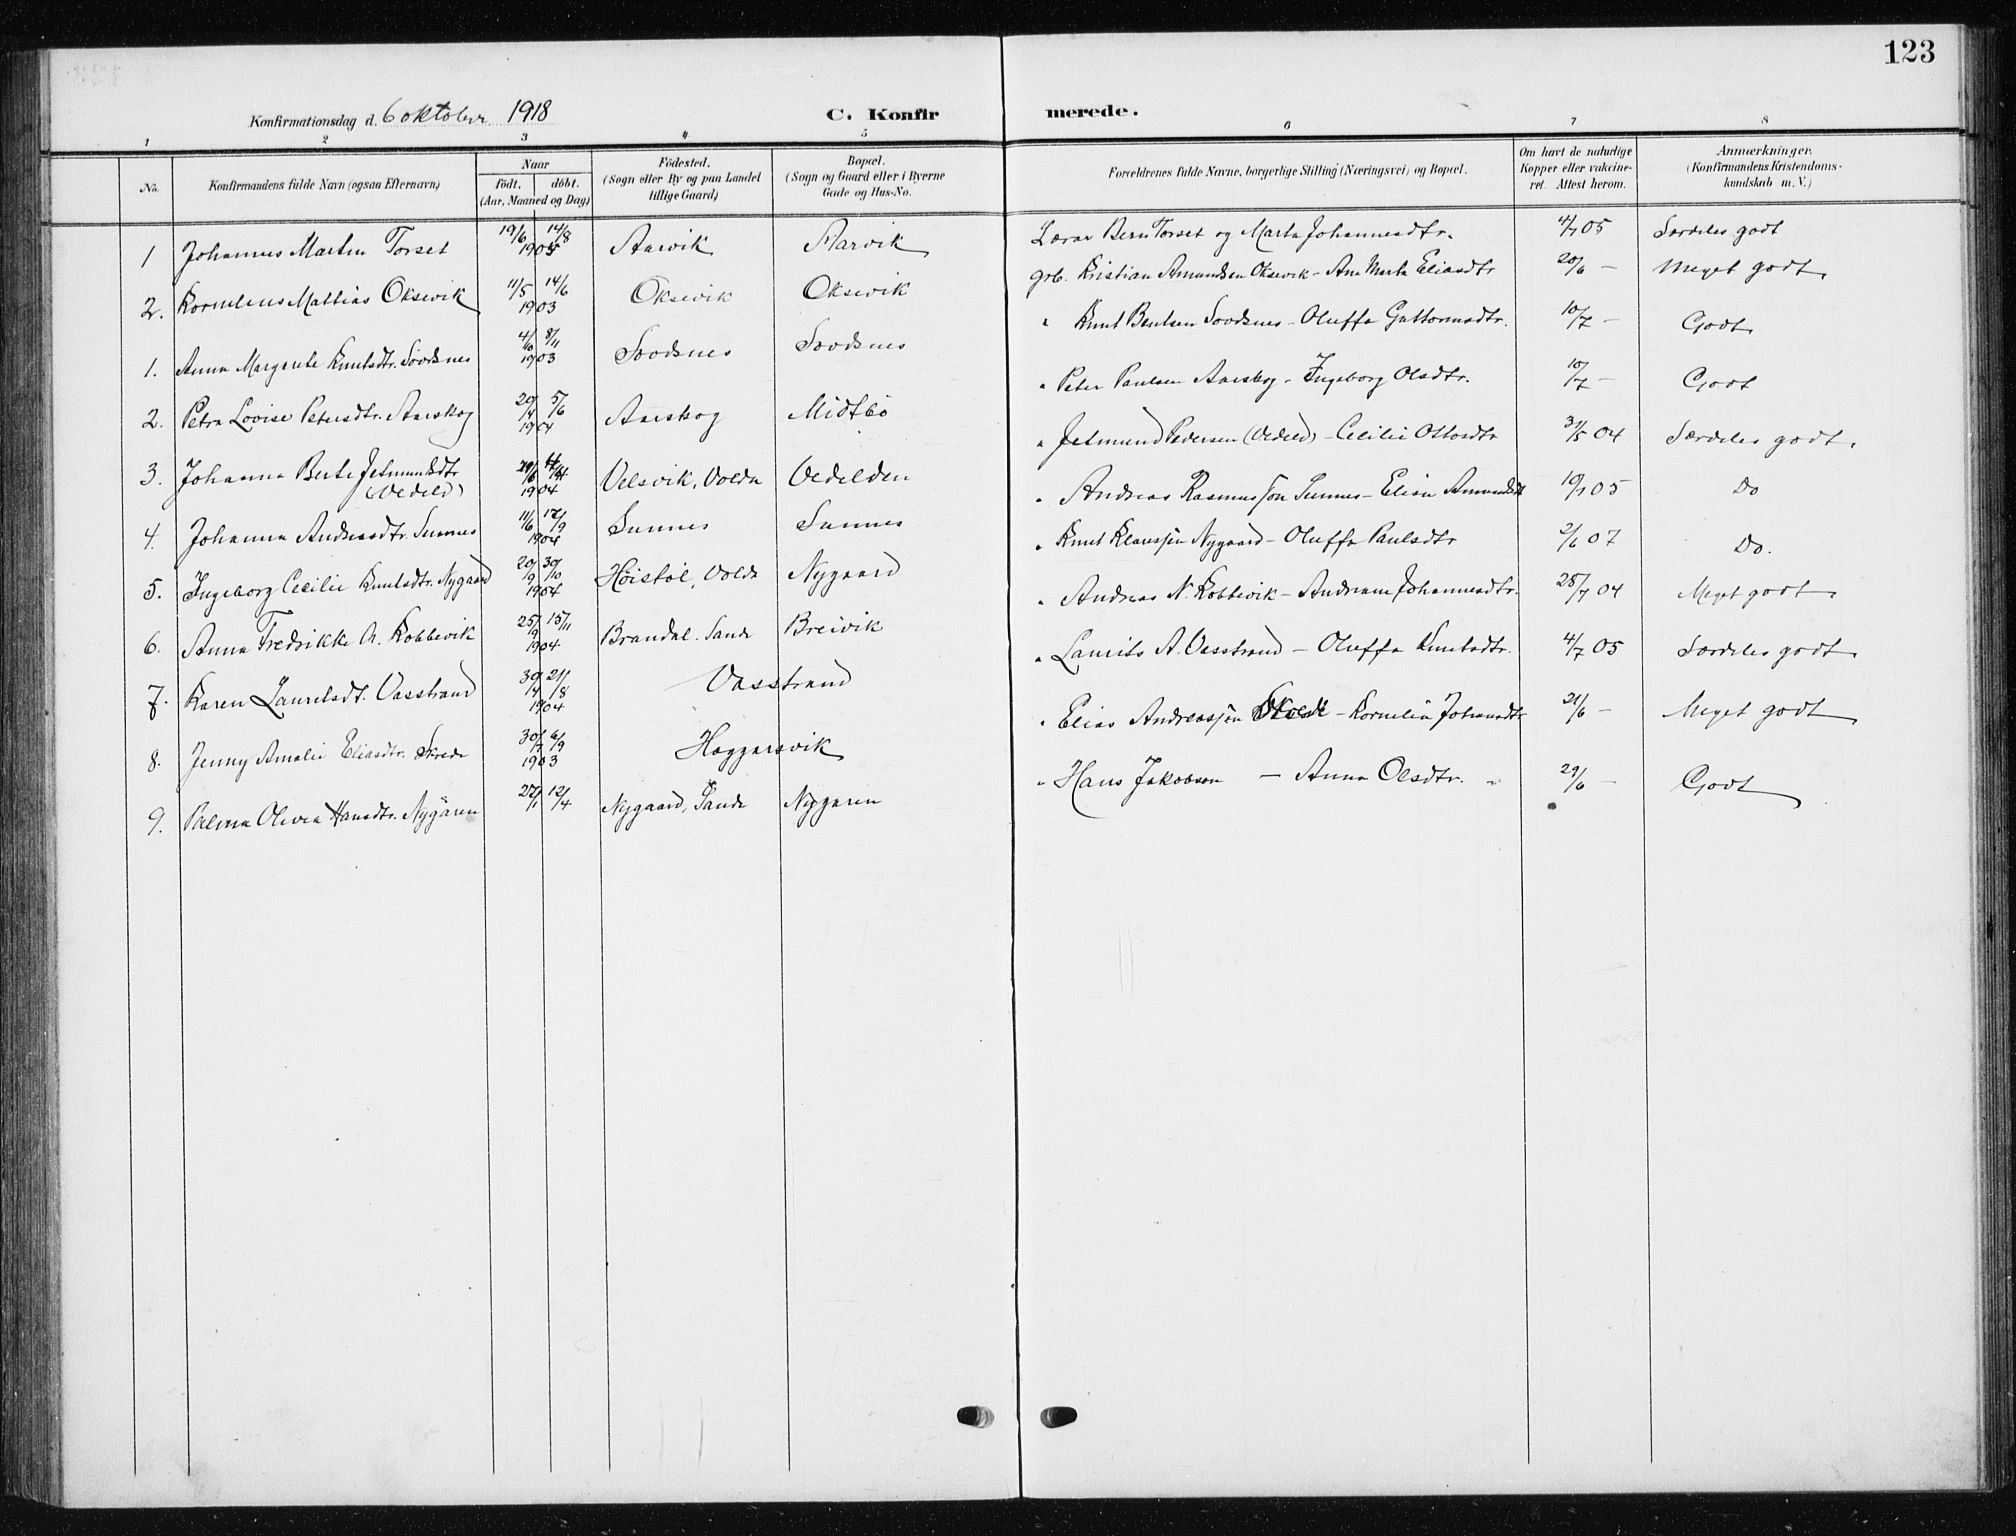 123
Konfirmationsdag d. 6 oktober 1918 C. Konfirmerede.
1 2 3 4 5 6 7 8
No. Konfirmandens fulde Navn (ogsaa Efternavn) Naar födt. döbt. (Aar, Maaned og Dag) Födested. (Sogn eller By og paa Landet tillige Gaard) Bopæl. (Sogn og Gaard eller i Byerne Gade og Hus-No. Forældrenes fulde Navne, borgerlige Stilling (Næringsvei) og Bopæl. Om havt de naturlige Kopper eller vakcineret. Attest herom. Anmærkninger. (Konfirmandens Kristendomskundskab m. V.)
1 Johannes Martin Torset 19/6 14/8 1903 Aarvik Aarvik Lærer Bern Torset og Marta Johannesdtr. 4/7 05 Særdeles godt
2. Kornelius Mattias Oksevik 11/5 14/6 1903 Oksevik Oksevik grb. Kristian Amundsen Oksevik - Ane Marta Eliasdtr 20/6 — Meget godt
1. Anna Margrete Knutsdtr. Sordsnes 4/10 8/11 1903 Sordsnes Sordsnes " Knut Bentsen Sordsnes - Oluffa Guttormsdtr. 10/7 — Godt
2. Petra Lovise Petersdtr. Aarskog 20/4 5/6 1904 Aarskog Midtbö " Peter Paulsen Aarskog - Ingeborg Olsdtr. 10/7 — Godt
3. Johanna Berte Jetmundsdtr (Vedeld) 1904 Velsvik, Volda Vedelden " Jetmund Pedersen (Vedeld) - Cecilie Ottosdtr 31/5 04 Særdeles godt.
4. Johanna Andreasdtr. Sunnes 11/6 17/9 1904 Sunnes Sunnes " Andreas Rasmussøn Sunnes - Elisa Amundsdtr 19/7 05 Do
5. Ingeborg Cecilie Knutsdtr. Nygaard 20/9 30/10 1904 Höistöl, Volda Nygaard " Knut Klaussøn Nygaard - Oluffa Paulsdtr 2/6 07 Do.
6. Anna Fredrikke A. Kobbevik 25/9 15/11 1904 Brandal. Sande Breivik " Andreas N. Kobbevik - Andriane Johannesdtr. 28/7 04 Meget godt
7. Karen Lauritsdt. Vasstrand 30/4 21/8 1904 Vasstrand " Laurits A. Vasstrand - Oluffa Knutsdtr. 4/7 05 Særdeles godt
8. Jenny Amalie Eliasdtr. Skrede 30/7 6/9 1903 Haggarsvik " Elias Andreassøn - Kornelia Johansdtr 21/6 — Meget godt
9. Palma Olivia Hansdtr. Nygåren 27/1 12/4 Nygaard, Sande Nygaren " Hans Jakobson — Anna Olsdtr. " 29/6 — Godt